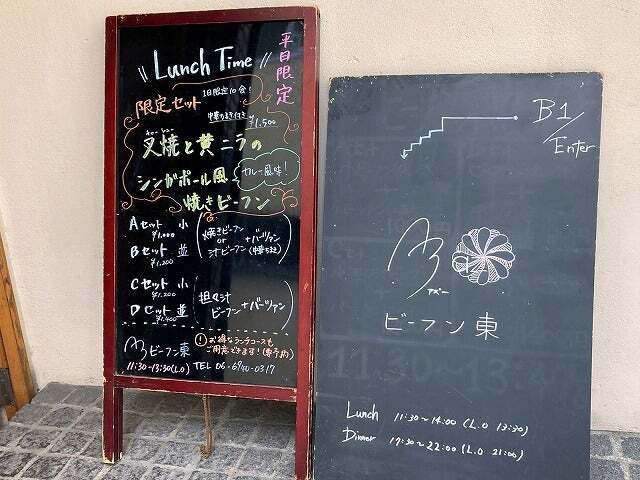 平日限定
\\ Lunch Time //
限定セット 1日限定10食!
中華ちまき付き ¥1,500
チャーシュー
叉焼と黄ニラの
シンガポール風
カレー風味!
焼きビーフン
Aセット 小
¥1,000
Bセット 並
¥1,200
(焼きビーフン
or
汁ビーフン
+バーツァン
(中華ちまき)
Cセット 小
¥1,200
Dセット 並
¥1,400
(担々汁
ビーフン +バーツァン)
ビーフン東
! お得なランチコースも
ご用意できます!(要予約)
11:30-13:30(L.O) TEL 06-6940-0317
B1/Enter
アズー
ビーフン東
Lunch 11:30~14:00 (L.O 13:30)
Dinner 17:30~22:00 (L.O 21:00)